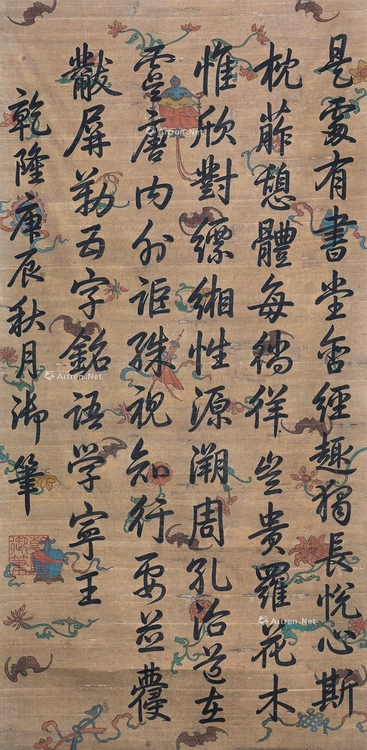 是處有書堂含經趣獨長悅心斯
枕葄憩體每徜徉豈貴羅花木
惟欣對縹緗性源溯周孔治道在
虞唐內外詎殊視知行要並蘉
黻屏勒五字銘語学寧王
乾隆庚辰秋月御筆
Artron.Net
Artron.Net
Artron.Net
Artron.Net
Artron.Net